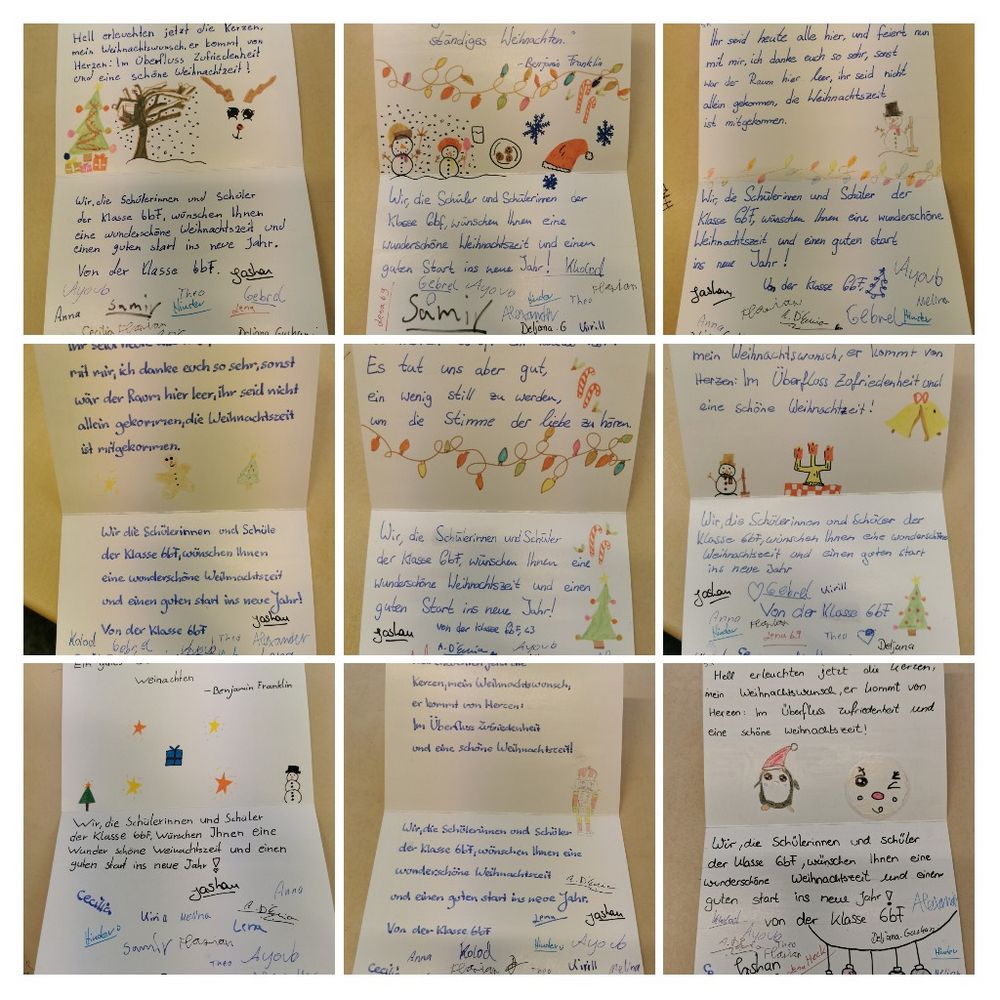 Hell erleuchten jetzt die Kerzen,
mein Weihnachtswunsch, er kommt von
Herzen: Im Überfluss Zufriedenheit
und eine schöne Weihnachtzeit!
Wir, die Schülerinnen und Schüler
der Klasse 6bF, wünschen Ihnen
eine wunderschöne Weihnachtszeit und
einen guten start ins neue Jahr.
Von der Klasse 6bF. Jashan
Ayoub Theo Gebrel
Anna Samir Hinder Lena
Cecilia Florian Deljana Gashani
ständiges Weihnachten."
-Benjamin Franklin
Wir, die Schüler und Schülerinnen der
Klasse 6bf, wünschen Ihnen eine
wunderschöne Weihnachtszeit und einen
guten Start ins neue Jahr! Kholod
Lena 69 Gebrel Ayoub Hinder Theo Florian
Samir Alexander
Deljana.G Uirill
Ihr seid heute alle hier, und feiert nun
mit mir, ich danke euch so sehr, sonst
wär der Raum hier leer, ihr seid nicht
allein gekommen, die Weihnachtszeit
ist mitgekommen.
Wir, die Schülerinnen und Schüler der
Klasse 6bF, wünschen Ihnen eine wunderschöne
Weihnachtszeit und einen guten start
ins neue Jahr!
Von der Klasse 6bF Ayoub
Jashan Florian Melina
Anna A. D'Enia Gebrel Hinder
mit mir, ich danke euch so sehr, sonst
wär der Raum hier leer, ihr seid nicht
allein gekommen, die Weihnachtszeit
ist mitgekommen.
Wir die Schülerinnen und Schüle
der Klasse 6bF, wünschen Ihnen
eine wunderschöne Weihnachtszeit
und einen guten start ins neue Jahr!
Jashan
Von der Klasse 6bF
Kolod Gebrel Ayoub Theo Alexander
Es tut uns aber gut,
ein wenig still zu werden,
um die Stimme der liebe zu hören.
Wir, die Schülerinnen und Schüler
der Klasse 6bF, wünschen Ihnen eine
wunderschöne Weihnachtszeit und einen
guten Start ins neue Jahr!
Jashan von der klasse 6bF, 63
A. D'Enia Ayoub
mein Weihnachtswunsch, er kommt von
Herzen: Im Überfluss Zufriedenheit und
eine schöne Weihnachtzeit!
Wir, die Schülerinnen und Schüler der
Klasse 6bF, wünschen Ihnen eine wunderschöne
Weihnachtszeit und einen guten start
ins neue Jahr
Jashan Gebrel Uirill
Von der Klasse 6bF
Anna Florian
Hinder Lena 69 Theo Deljana
Weinachten
-Benjamin Franklin
Wir, die Schülerinnen und Schüler
der Klasse 6bF, Wünschen Ihnen eine
Wunder schöne Weinachtszeit und einen
guten start ins neue Jahr!
Cecilia Jashan Anna
Melina A. D'Enia
Hinder Lena
Samir Florian
Theo Ayoub
Kerzen, mein Weihnachtswunsch,
er kommt von Herzen:
Im Überfluss Zufriedenheit
und eine schöne Weihnachtszeit!
Wir, die Schülerinnen und Schüler
der Klasse 6bF, wünschen Ihnen eine
wunderschöne Weihnachtszeit
A. D'Enia
und einen guten start ins neue Jahr.
Lena Jashan
Von der Klasse 6bF
Anna Kolod Hinder Ayoub
Florian Uirill Melina
Hell erleuchten jetzt die Kerzen,
mein Weihnachtswunsch, er kommt von
Herzen: Im Überfluss zufriedenheit und
eine schöne weihnachtszeit!
Wir, die Schülerinnen und schüler
der klasse 6bF, wünschen Ihnen eine
wunderschöne Weihnachtszeit und einen
guten start ins neue Jahr!
Alexander
von der Klasse 6bF
Ayoub Theo Deljana-Gashani
Florian Hinder
Jashan Lena Heck
Melina